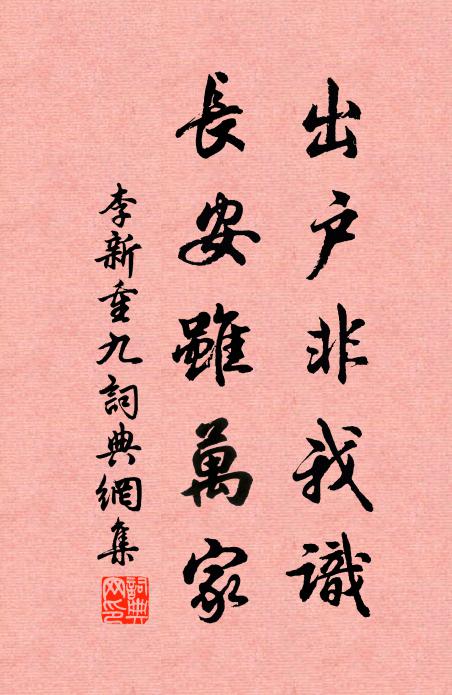 出户非我識
長安雖萬家
李新重九詞典網集
詞典网印